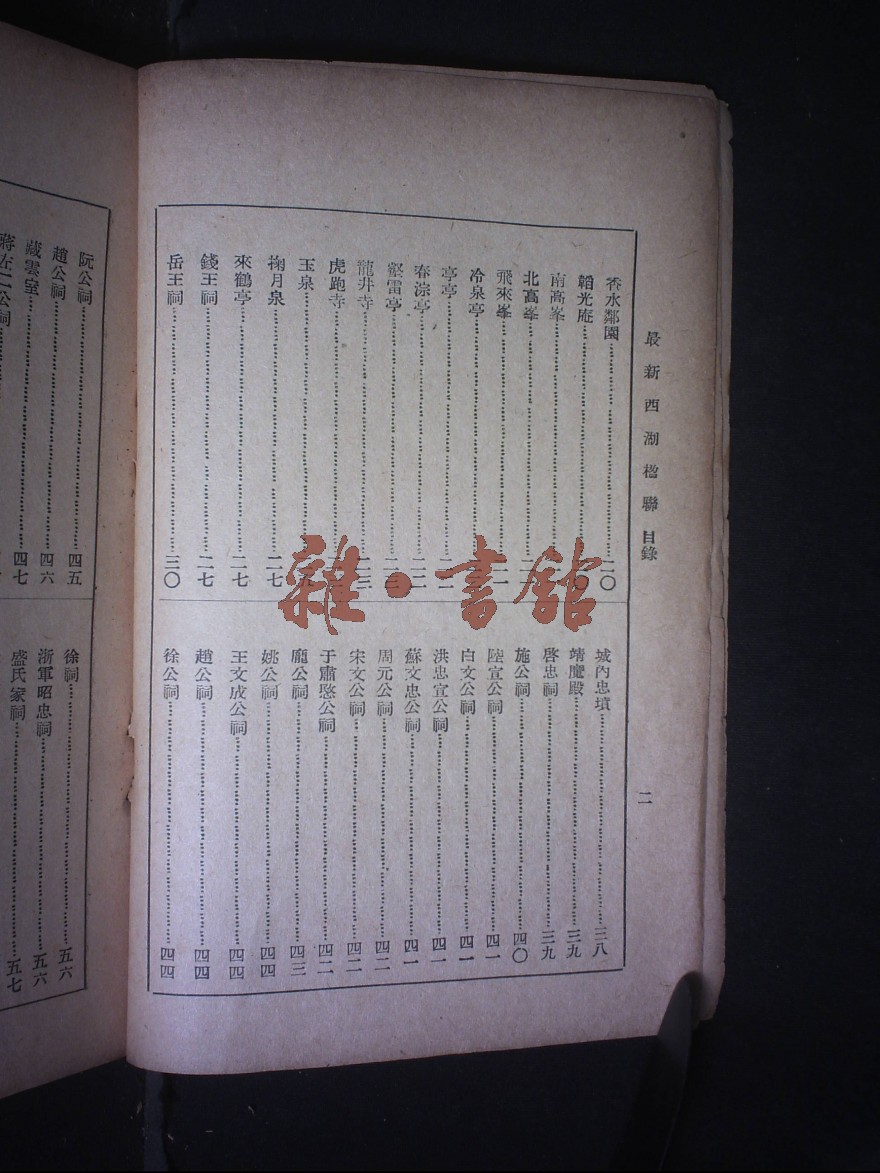 最新西湖楹聯目錄
二
香水鄰園……二〇
韜光庵……二〇
南高峯
北高峯
飛來峯
冷泉亭
亭亭
春淙亭……二二
壑雷亭
龍井寺……二三
虎跑寺
玉泉
掬月泉……二七
來鶴亭……二七
錢王祠……二七
岳王祠……三〇
城內忠墳……三八
靖魔殿……三九
啓忠祠……三九
施公祠……四〇
陸宣公祠……四一
白文公祠……四一
洪忠宣公祠……四一
蘇文忠公祠……四一
周元公祠……四二
宋文公祠……四二
于肅愍公祠……四二
龐公祠……四三
姚公祠……四四
王文成公祠……四四
趙公祠……四四
徐公祠……四四
阮公祠……四五
趙公祠……四六
藏雲室……四七
蔣左二公祠
徐祠……五六
浙軍昭忠祠……五六
盛氏家祠……五七
雜·書館